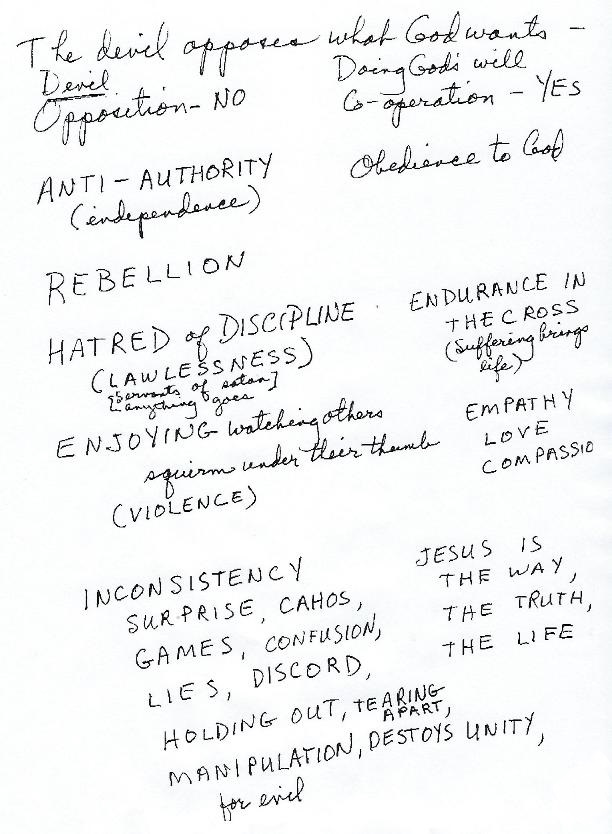 The devil opposes what God wants -
Devil
Opposition - NO
Doing God's will
Co-operation - YES
ANTI - AUTHORITY
(independence)
Obedience to God
REBELLION
HATRED of DISCIPLINE
(LAWLESSNESS)
[Servants of satan]
[anything goes
ENDURANCE IN
THE CROSS
(Suffering brings
life)
ENJOYING watching others
squirm under their thumb
(VIOLENCE)
EMPATHY
LOVE
COMPASSIO
INCONSISTENCY
SURPRISE, CAHOS,
GAMES, CONFUSION,
LIES, DISCORD,
HOLDING OUT, TEARING
APART,
MANIPULATION, DESTOYS UNITY,
for evil
JESUS IS
THE WAY,
THE TRUTH,
THE LIFE